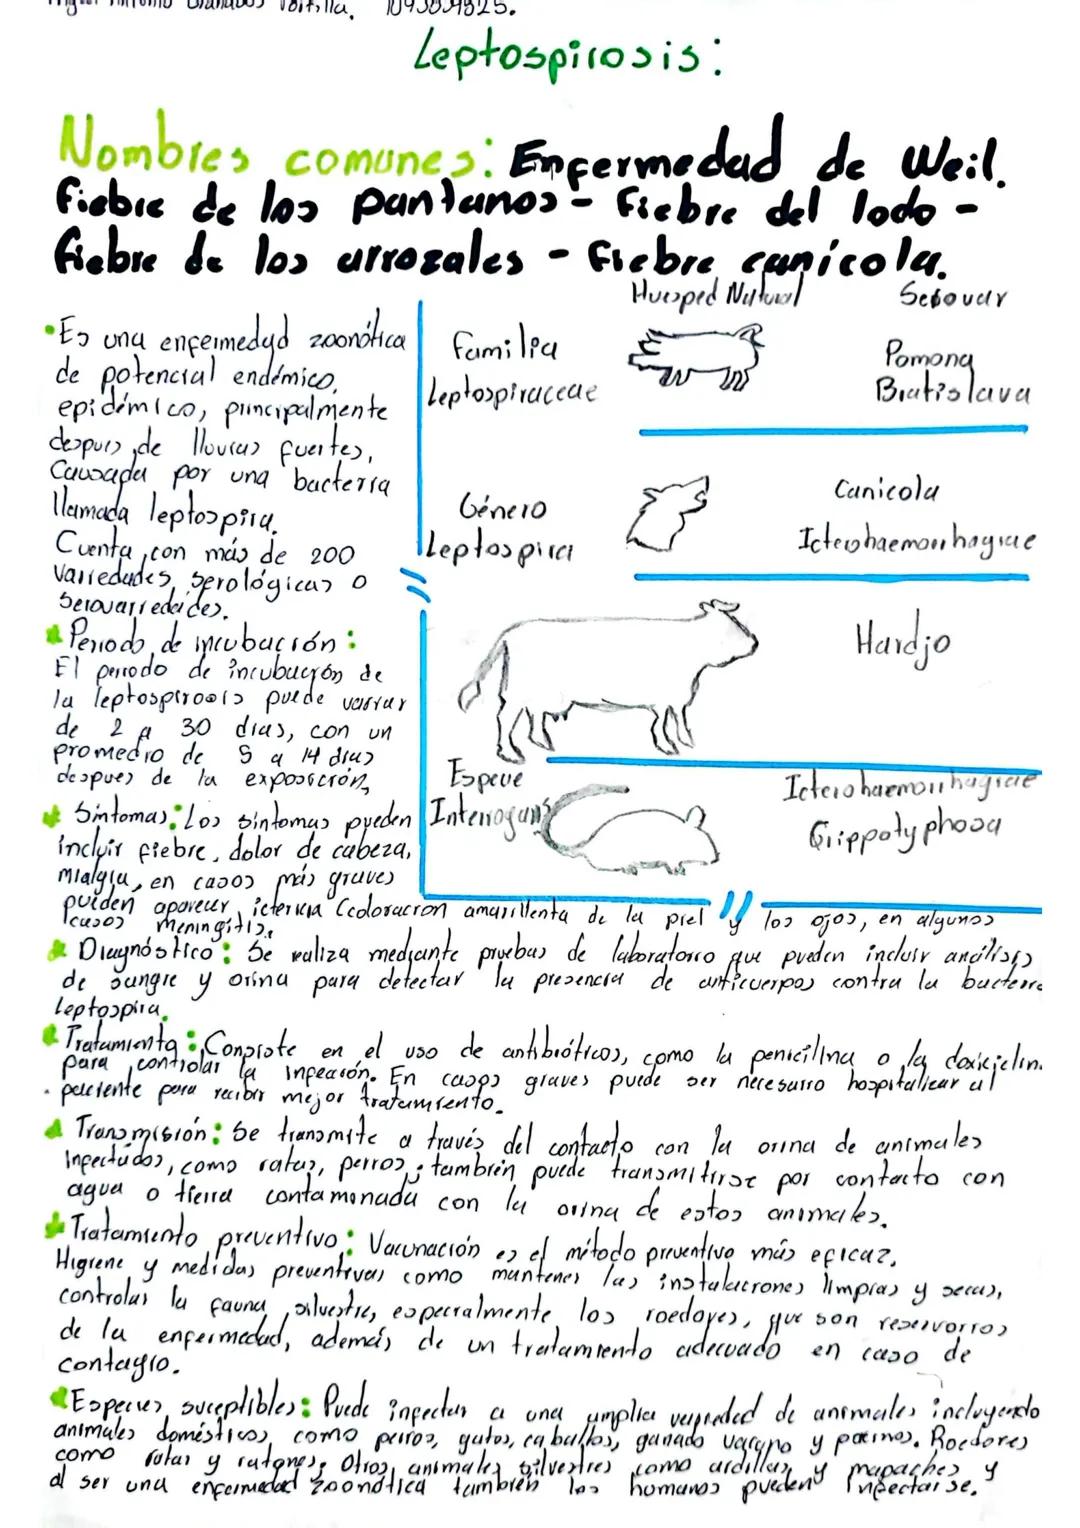 Leptospirosis:
Nombres comunes: Enfermedad de Weil.
fiebre de los pantanos - fiebre del lodo -
fiebre de los arrozales - fiebre canícola.
Huesped Natural Serovar
• Es una enfermedad zoonótica
de potencial endémico,
epidémico, principalmente
despues de lluvias fuertes,
Causada por una bacteria
llamada leptospira.
Cuenta con más de 200
variedades serológicas o
serovarredades.
Periodo de incubación:
El periodo de incubación de
la leptospirosis puede variar
de 2 a 30 dias, con un
promedio de 5 a 14 dias
despues de la exposición,
Familia
Leptospiraceae
Pomona
Bratislava
Género
Leptospira
Canicola
Icterohaemorrhagiae
Hardjo
Especie
Interrogans
Icterohaemorrhagiae
Grippotyphosa
Síntomas: Los síntomas pueden
incluir fiebre, dolor de cabeza,
mialgia, en casos más graves
pueden aparecer ictericia (coloración amarillenta de la piel y los ojos, en algunos
casos meningitis.
Diagnóstico: Se realiza mediante pruebas de laboratorio que pueden incluir análisis
de sangre y orina para detectar la presencia de anticuerpos contra la bacteria
leptospira.
Tratamiento: Consiste en el uso de antibióticos, como la penicilina o la doxiciclin.
para controlar la infección. En casos graves puede ser necesario hospitalizar al
paciente para recibir mejor tratamiento.
Transmisión: Se transmite a través del contacto con la orina de animales
infectados, como ratas, perros; también puede transmitirse por contacto con
agua o tierra contaminada con la orina de estos animales.
Tratamiento preventivo: Vacunación es el método preventivo más eficaz.
Higiene y medidas preventivas como mantener las instalaciones limpias y secas,
controlar la fauna silvestre, especialmente los roedores, que son reservorios
de la enfermedad, además de un tratamiento adecuado en caso de
contagio.
Especies suceptibles: Puede infectar a una amplia variedad de animales incluyendo
animales domésticos como perros, gatos, caballos, ganado vacuno y porinos. Roedores
como ratas y ratones; Otros animales silvestres como ardillas y mapaches y
al ser una enfermedad zoonótica también los humanos pueden infectarse.